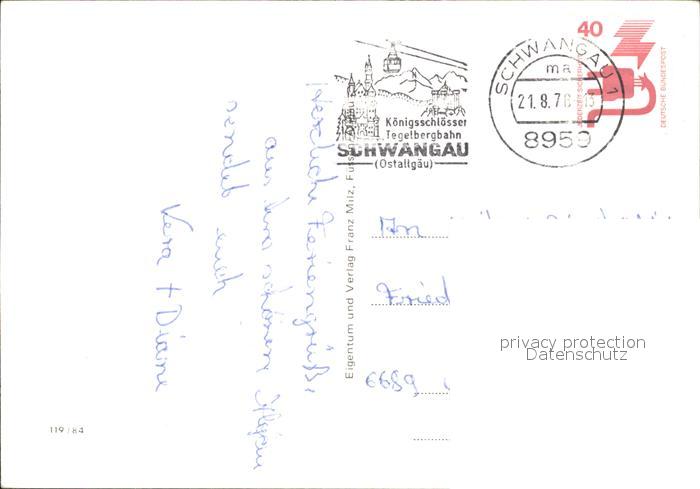 40
SCHWANGAU 1
ma
21.8.78-13
8959
JEDERZEIT SICHERHEIT
DEUTSCHE BUNDESPOST
Königsschlösser
Tegelbergbahn
SCHWANGAU
(Ostallgäu)
Herzliche Feriengrüße
aus dem schönen Allgäu
sendet euch
Vera + Diane
Eigentum und Verlag Franz Milz, Füssen
An
Fried
6689
privacy protection
Datenschutz
119/84